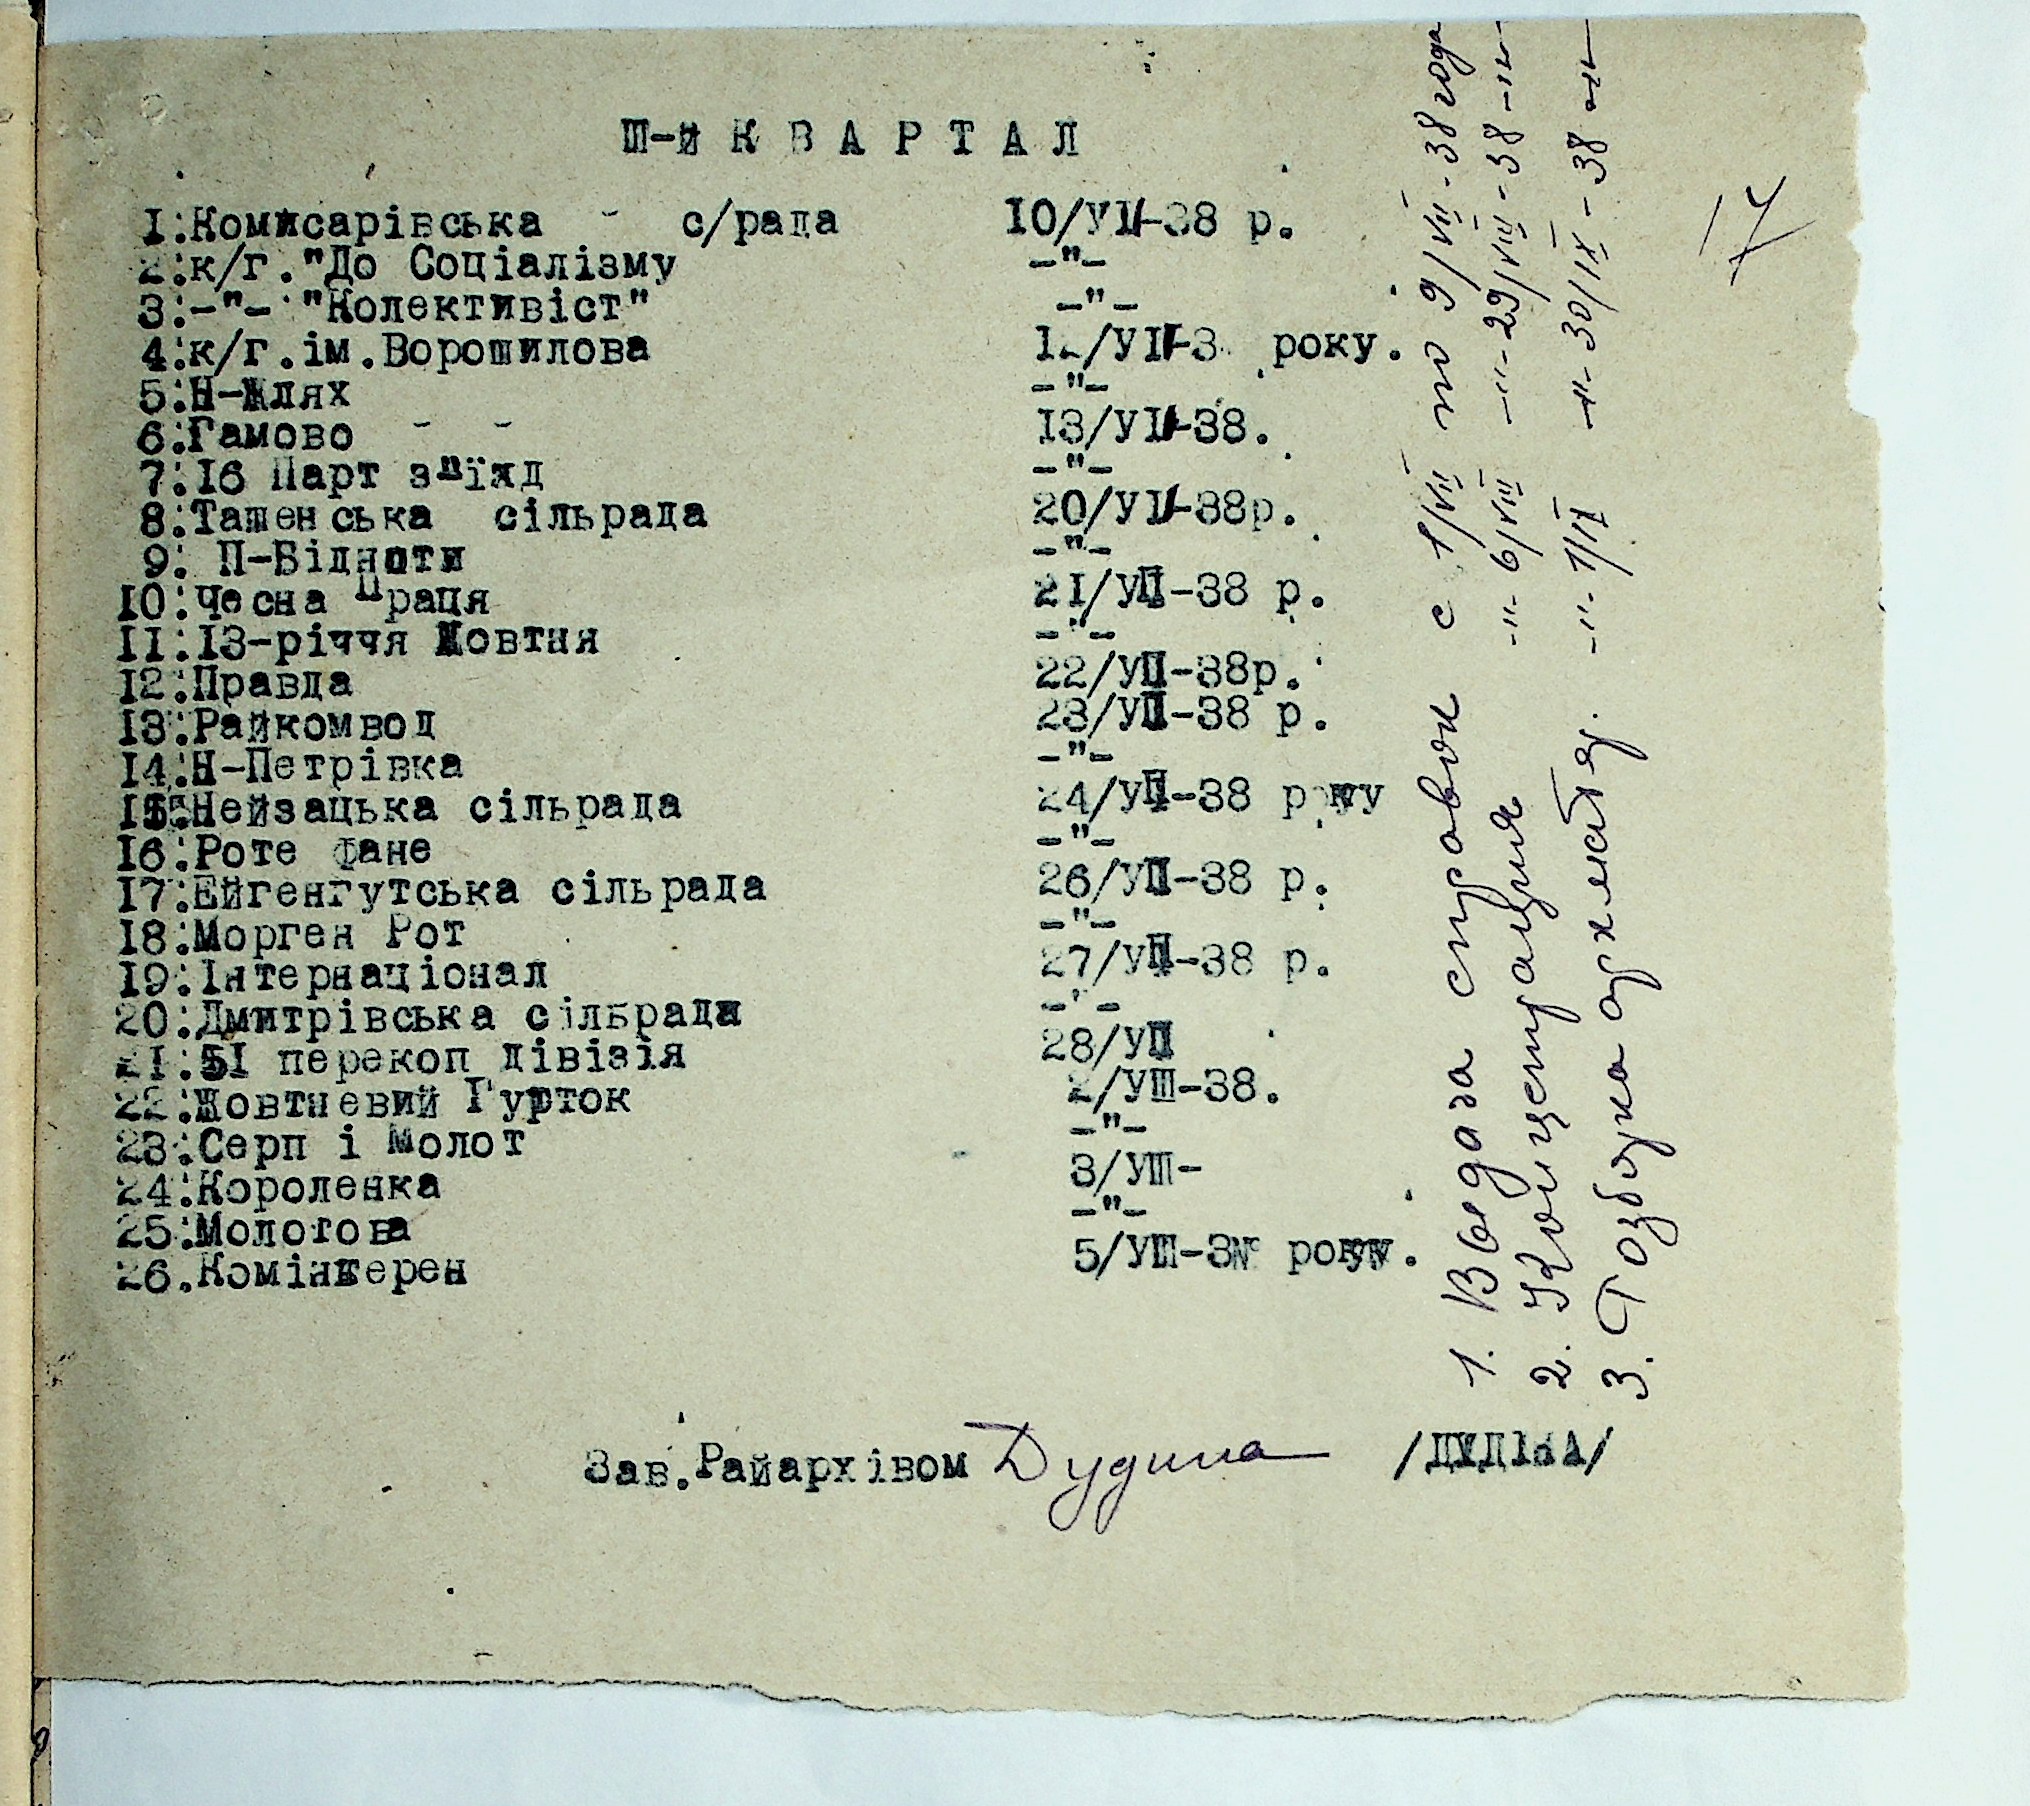 Ш-й КВАРТАЛ
I.Комисарівська с/рада 10/УІІ-38 р.
2.к/г."До Соціалізму -"-
3.-"- "Колективіст" -"-
4.к/г.ім.Ворошилова 12/УІІ-3 року.
5.Н-Шлях -"-
6.Гамово 13/УІІ-38.
7.16 Парт з"їзд -"-
8.Ташенська сільрада 20/УІІ-38р.
9. П-Бідноти -"-
10.Чесна Праця 21/УІІ-38 р.
11.13-річчя Жовтня -"-
12.Правда 22/УІІ-38р.
13.Райкомвод 23/УІІ-38 р.
14.Н-Петрівка -"-
15.Нейзацька сільрада 24/УІІ-38 року
16.Роте Фане -"-
17.Ейгенгутська сільрада 26/УІІ-38 р.
18.Морген Рот -"-
19.Інтернаціонал 27/УІІ-38 р.
20.Дмитрівська сілбрада -"-
21.51 перекоп дівізія 28/УІІ
22.Жовтневий Гурток 2/УШ-38.
23.Серп і Молот -"-
24.Короленка 3/УШ-
25.Молотова -"-
26.Комінтерен 5/УШ-3 року.
Зав.Райархівом Дудина /ДУДІНА/
1. Выдача справок с 1/VII по 9/VII-38 года
2. Концентрация -"- 6/VIII -"- 29/VIII-38 -"-
3. Розбурка архмат-яр. -"- 1/IX -"- 30/IX-38 -"-
17